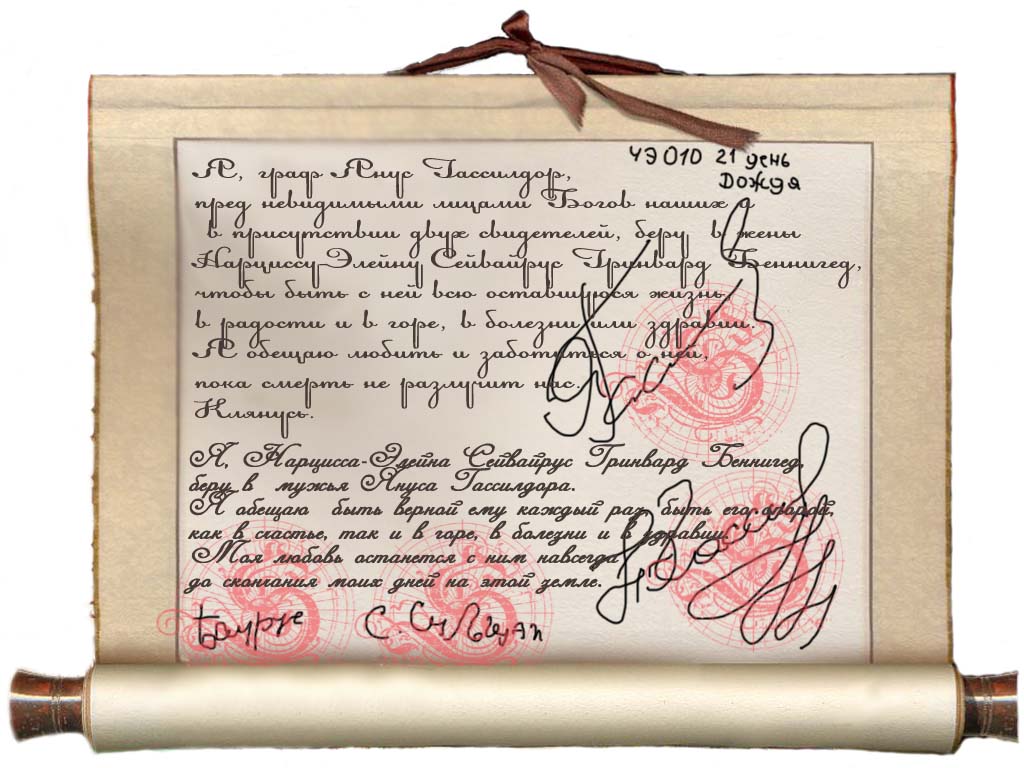 ЧЭ 010 21 день
Дождя
Я, граф Янус Гассилдор,
пред невидимыми лицами Богов наших и
в присутствии двух свидетелей, беру в жены
Нарциссу Элейну Сейвайрус Гринвард Беннигед,
чтобы быть с ней всю оставшуюся жизнь,
в радости и в горе, в болезни или здравии.
Я обещаю любить и заботиться о ней,
пока смерть не разлучит нас.
Клянусь.
Я, Нарцисса-Элейна Сейвайрус Гринвард Беннигед,
беру в мужья Януса Гассилдора.
Я обещаю быть верной ему каждый раз, быть его опорой,
как в счастье, так и в горе, в болезни и в здравии.
Моя любовь останется с ним навсегда
до скончания моих дней на этой земле.